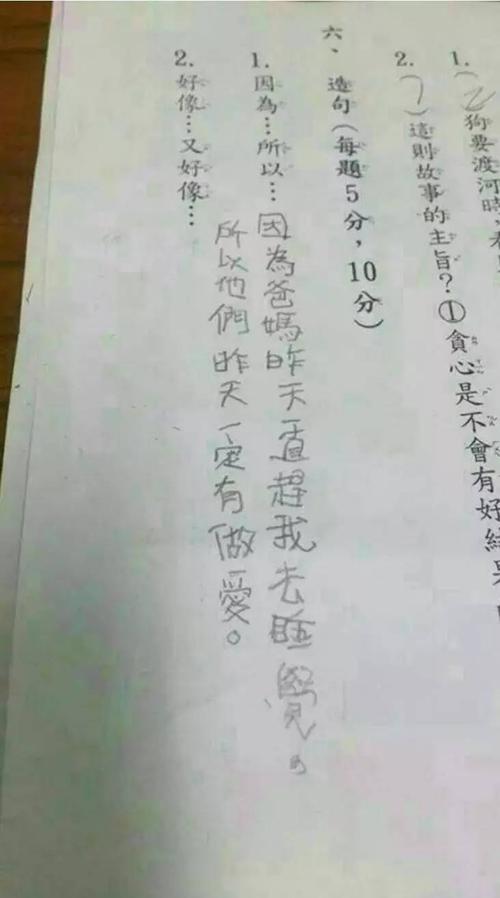 1.（2）狗要渡河時，
2.（）這則故事的主旨？①貪心是不會有好結果
六、造句（每題5分，10分）
1.因為…所以…因為爸媽昨天一直趕我去睡覺。
所以他們昨天一定有做愛。
2.好像…又好像…